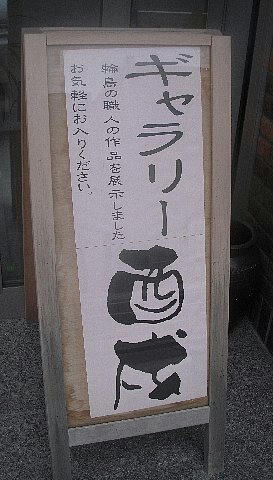 ギャラリー酉戌
輪島の職人の作品を展示しました
お気軽にお入りください。